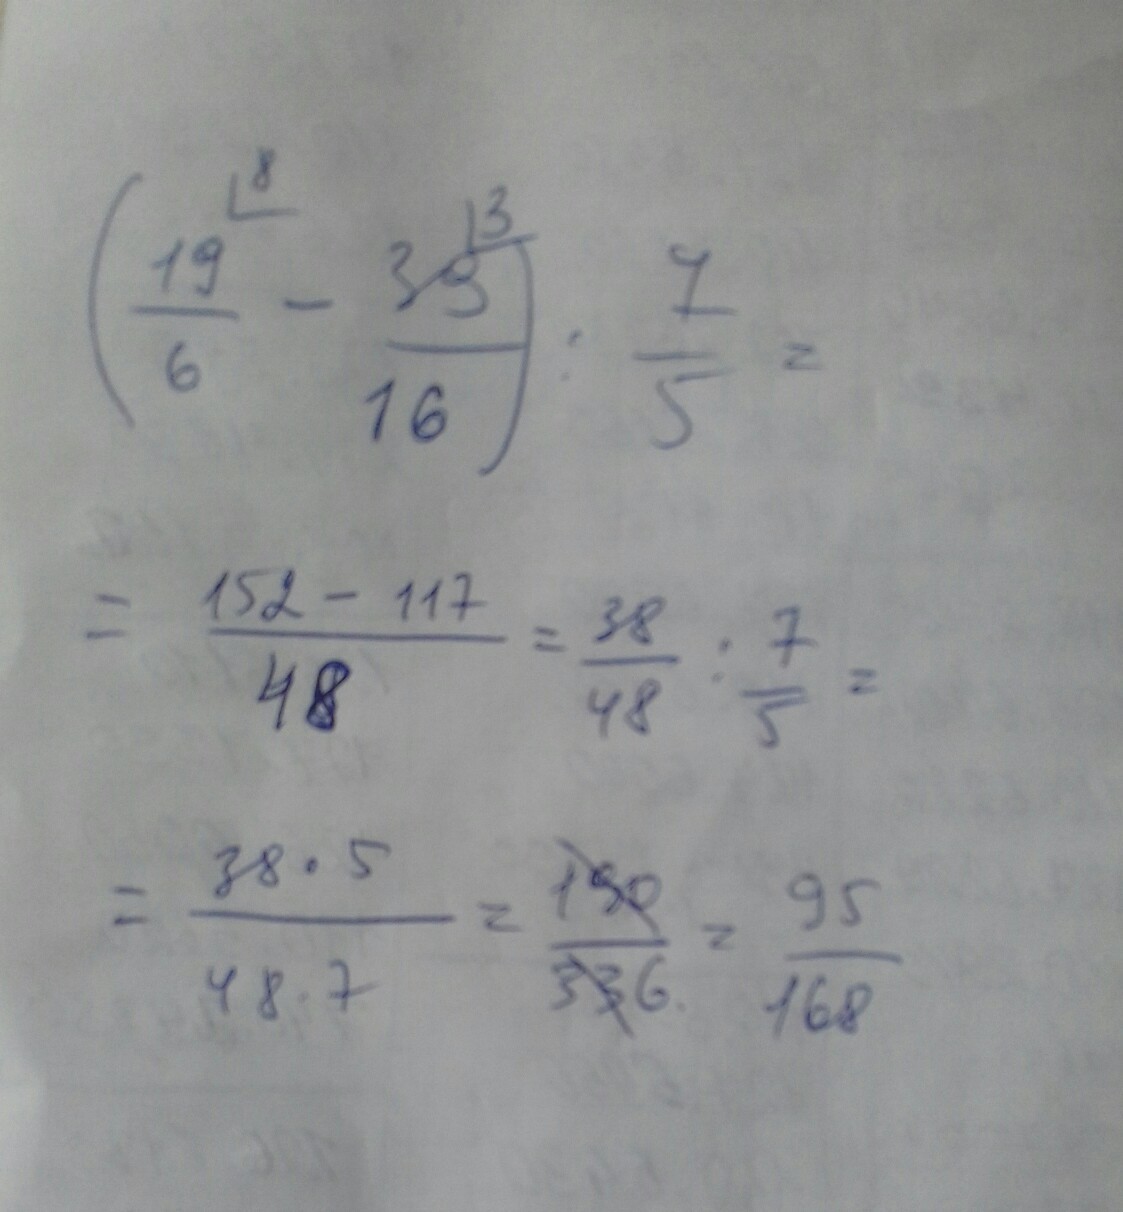 (19/6 ⌊8 - 39/16 ⌊3) : 7/5 =
= 152 - 117/48 = 38/48 : 7/5 =
= 38·5/48·7 = 190/336 = 95/168